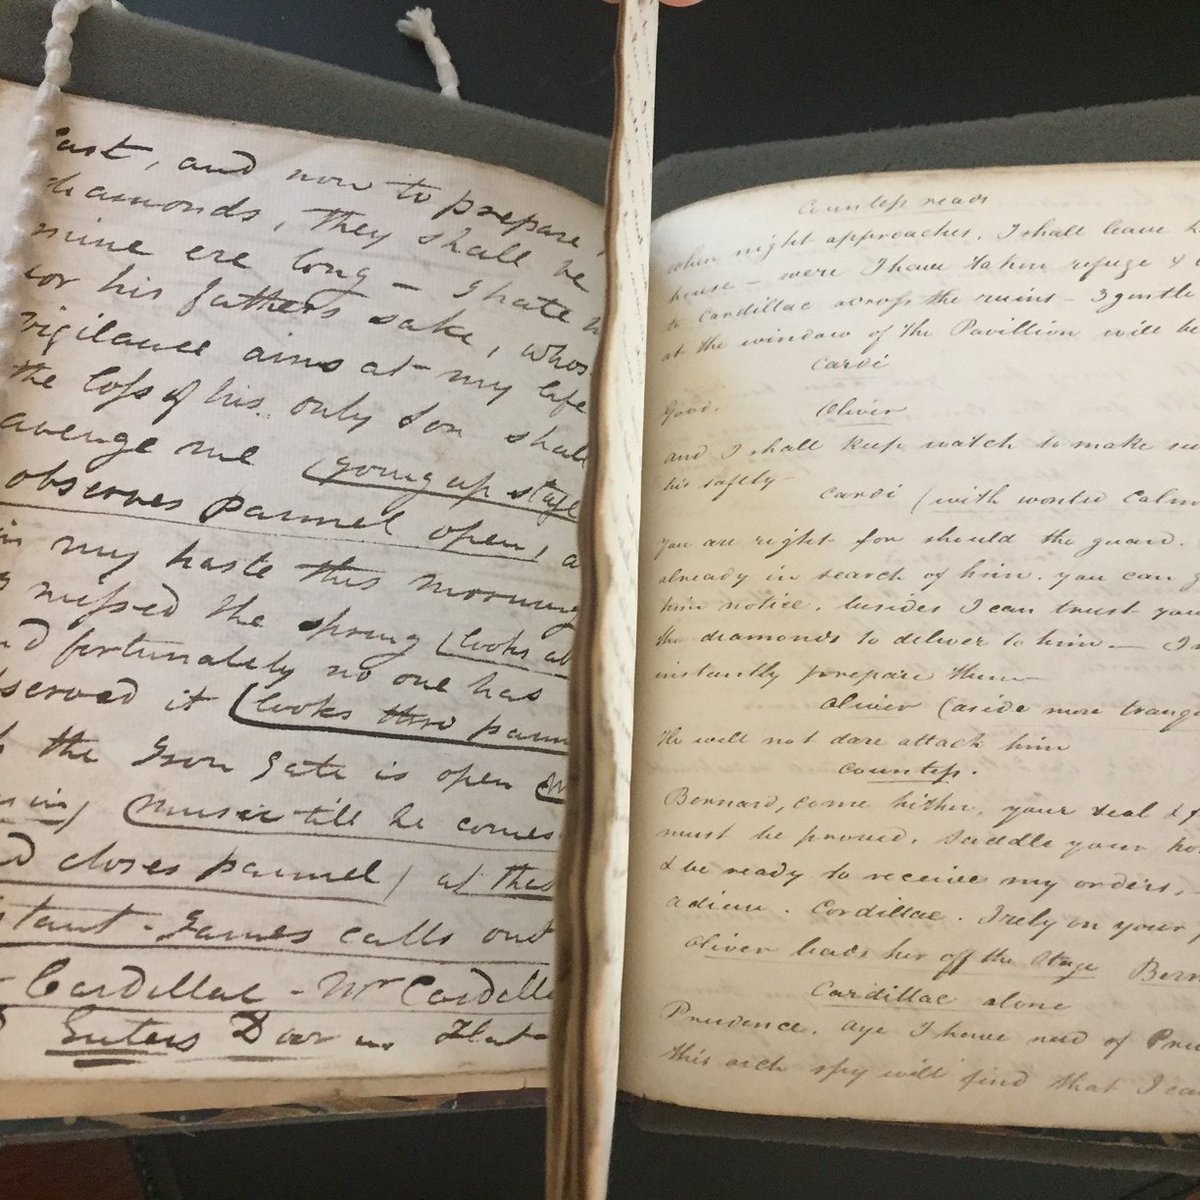 and now to prepare
diamonds, they shall be
mine ere long - I hate
for his fathers sake, whose
vigilance aims at my life
the loss of his only son shall
avenge me (going up stage
observes pannel open)
in my haste this morning
messed the spring (looks at
and fortunately no one has
observed it (looks thro pann
the Iron Gate is open
in) (Music till he comes
closes pannel) at this
instant - James calls out
Cardillac - Mr Cardillac
Enters Door in Flat
Countess reads
when night approaches. I shall leave
house - were I have taken refuge &
to Cardillac across the ruins - 3 gentle
at the window of the Pavillion will be
Cardi
Good.
Oliver
and I shall keep watch to make
his safety -
Cardi (with wonted calm
You are right for should the guard.
already in search of him. you can
him notice. besides I can trust you
the diamonds to deliver to him —
instantly prepare them -
Oliver (aside more tranqu
He will not dare attack him
Countess.
Bernard, come hither, your zeal &
must be proved. Saddle your
& be ready to receive my orders.
adieu. Cardillac. I rely on your
Oliver leads her off the Stage Bern
Cardillac alone
Prudence. aye I have need of
this arch spy will find that I